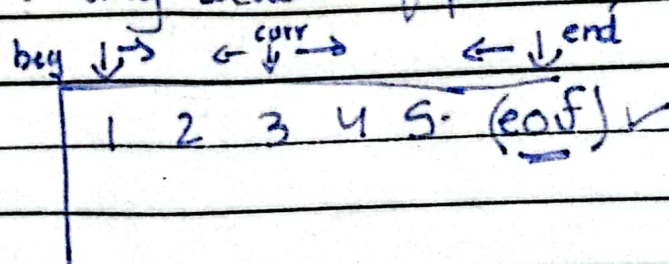 beg ↓→ ←curr→ ↓ ←↓ end
1 2 3 4 5. (eof) ✓